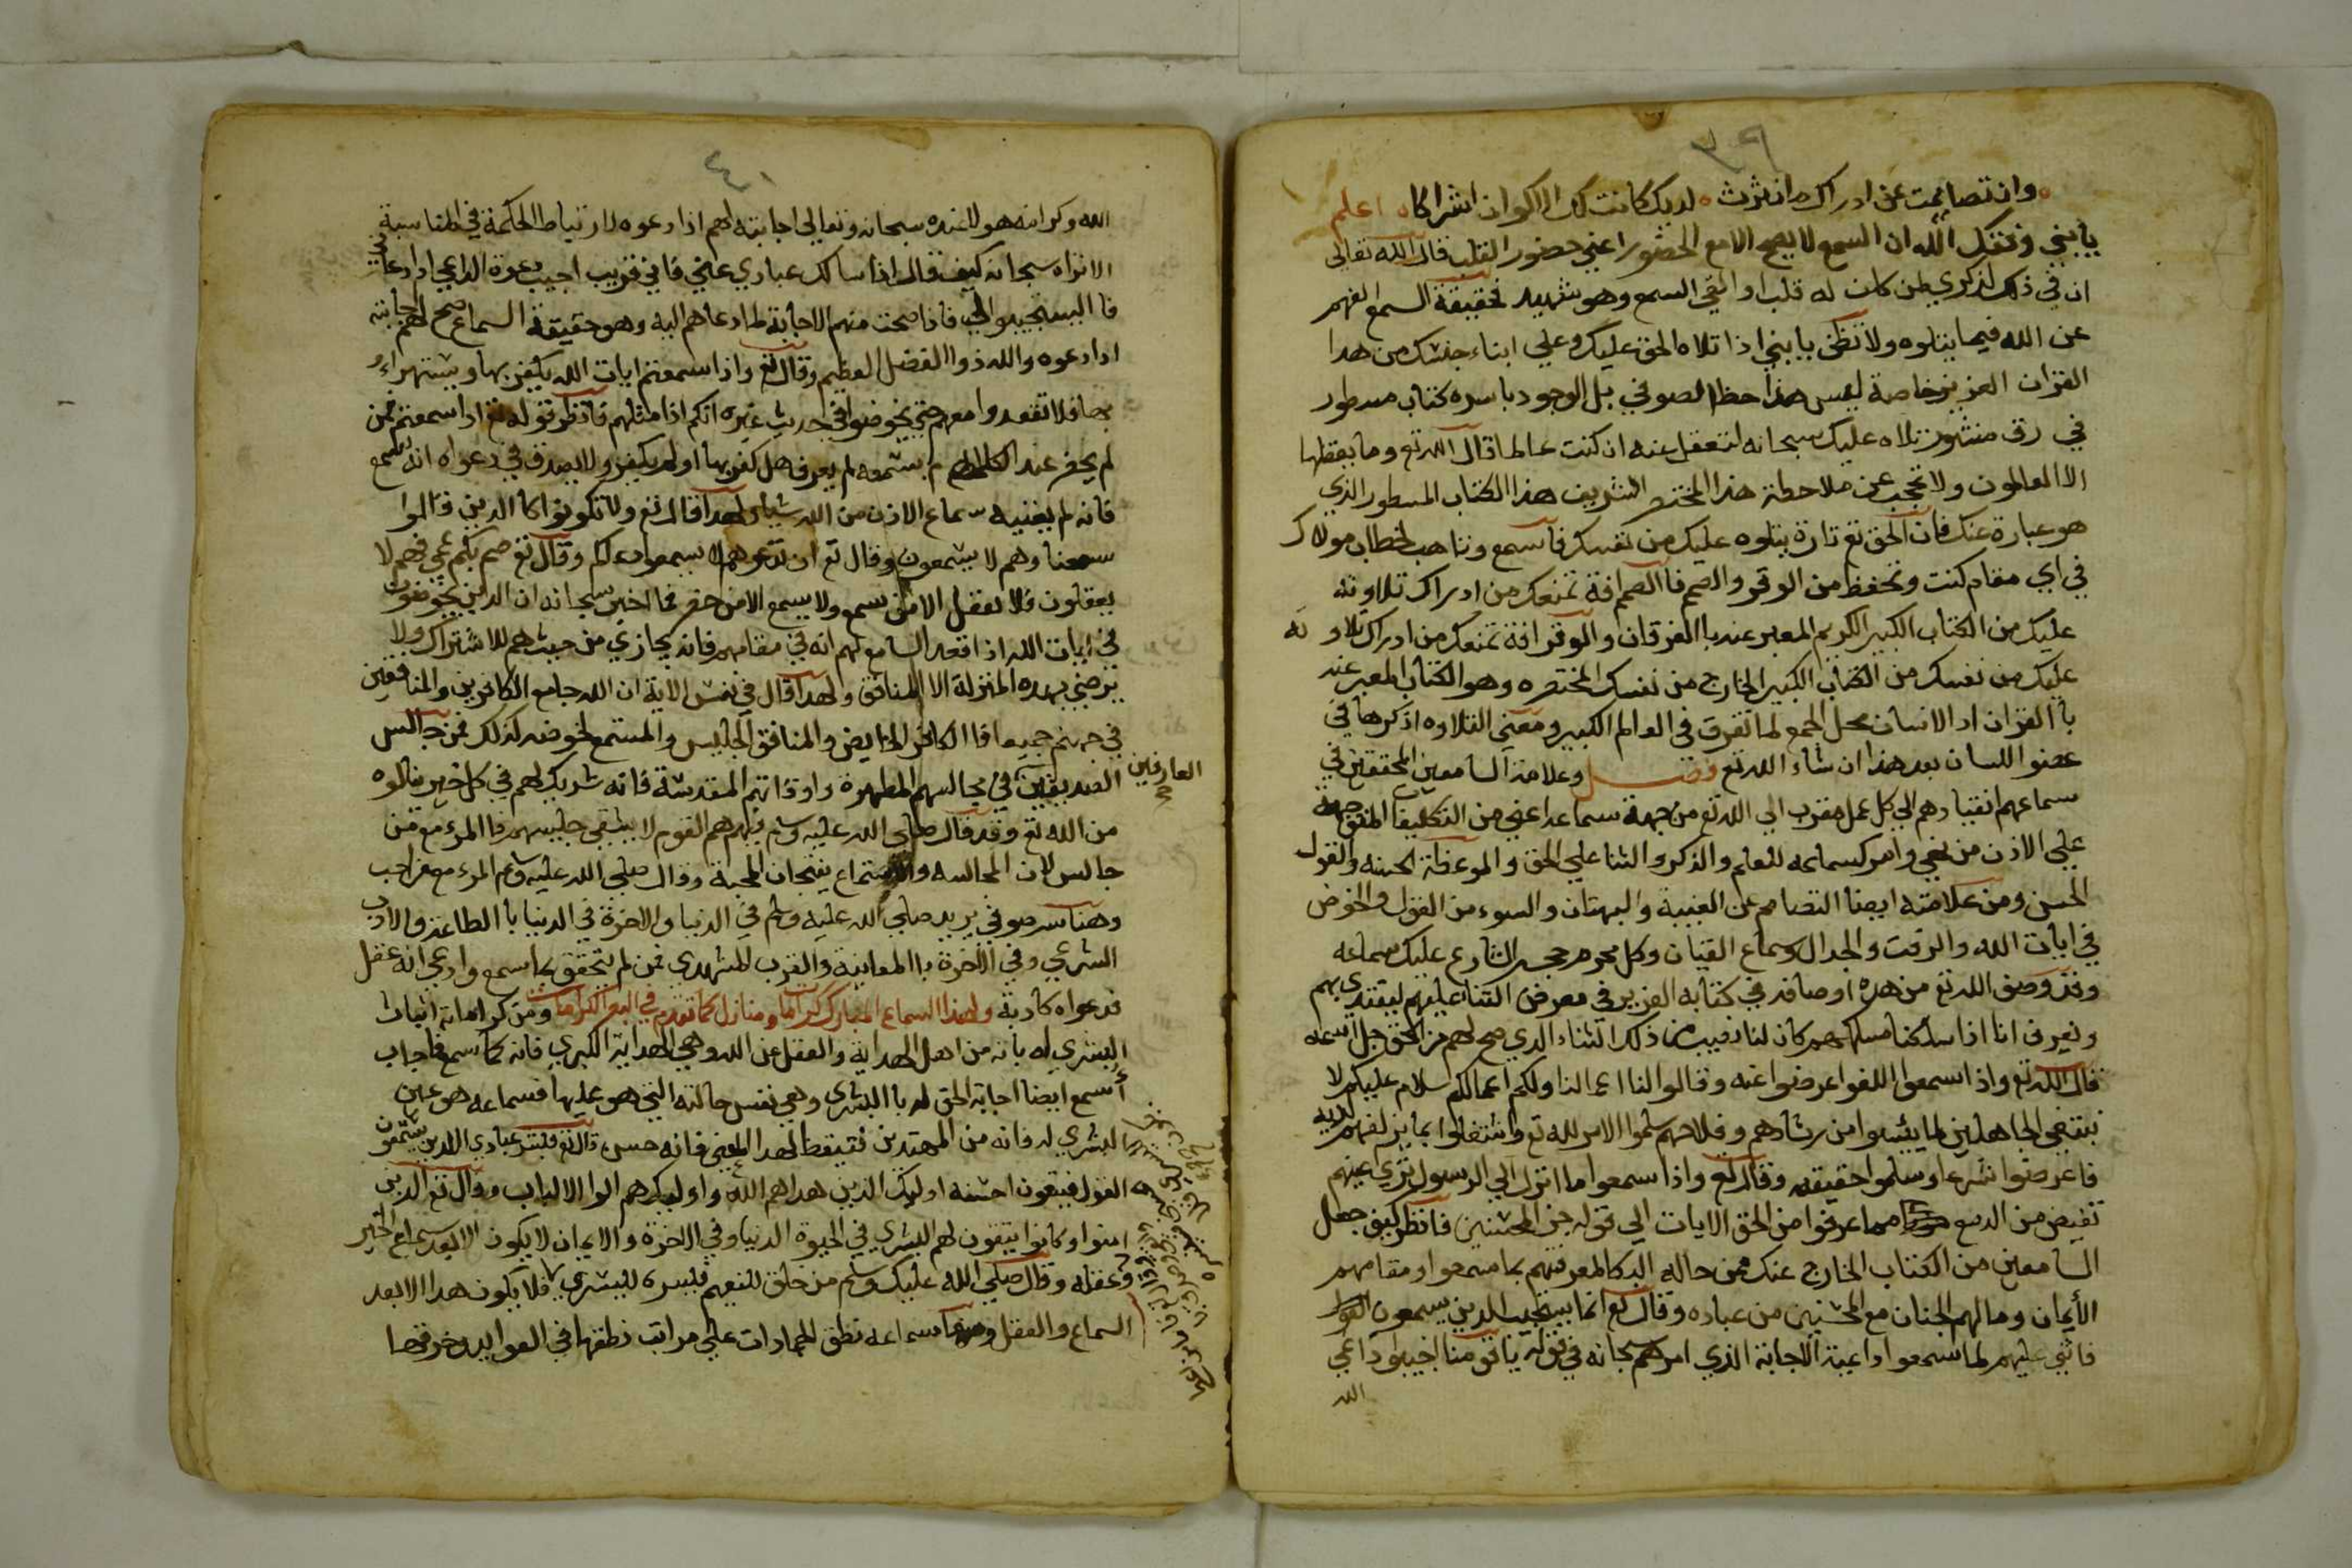 ٣٩
وان تصاممت عن ادراك ما نثرت لديك كانت لك الاكوان اشراكا اعلم
يا بني وفقك الله ان السمع لا يصح الا مع الحضور اعني حضور القلب قال الله تعالى
ان في ذلك لذكري لمن كان له قلب او القي السمع وهو شهيد فحقيقة السمع الفهم
عن الله فيما يتلوه ولا تظن يا بني اذا تلاه الحق عليك وعلي ابناء جنسك من هذا
القران العزيز خاصة ليس هذا حظ الصوفي بل الوجود باسره كتاب مسطور
في رق منشور تلاه عليك سبحانه لتعقل عنه ان كنت عالما قال الله تع وما يعقلها
الا العالمون ولا تحجب عن ملاحظة هذا المختصر الشريف هذا الكتاب المسطور الذي
هو عبارة عنك فان الحق تع تارة يتلوه عليك من نفسك فاسمع وتاهب لخطاب مولاك
في اي مقام كنت وتحفظ من الوقر والصمم فالصمم افة تمنعك من ادراك تلاوته
عليك من الكتاب الكبير الكريم المعبر عنه بالفرقان والوقر افة تمنعك من ادراك تلاوته
عليك من نفسك من الكتاب الكبير الخارج من نفسك المختصره وهو الكتاب المعبر عنه
بالقران اذ الانسان محل الجمع لما تفرق في العالم الكبير ومعني التلاوه اذكرها في
عضو اللسان بعد هذا ان شاء الله تع فصل وعلامة السامعين المحققين في
سماعهم انقيادهم الي كل عمل مقرب الي الله تع من جهة سماعه اعني من التكليف المتوجهة
علي الاذن من نهي وامر كسماعه للعلم والذكر والثنا علي الحق والموعظة الحسنه والقول
الحسن ومن علامته ايضا التصامم عن الغيبة والبهتان والسوء من القول والخوض
في ايات الله والرفث والجدال وسماع القيان وكل محرم حجر الشارع عليك سماعه
وقد وصف الله تع من هذه اوصافه في كتابه العزيز في معرض الثنا عليهم ليقتدي بهم
ونعرف انا اذا سلكنا مسلكهم كان لنا نصيب من ذلك الثناء الذي صح لهم من الحق جل اسمه
قال الله تع واذا سمعوا اللغو اعرضوا عنه وقالوا لنا اعمالنا ولكم اعمالكم سلام عليكم لا
نبتغي الجاهلين لما يئسوا من رشادهم وفلاحهم سلموا الامر لله تع واشتغلوا بما يزلفهم لديه
فاعرضوا شرعا وسلموا حقيقه وقال تع واذا سمعوا ما انزل الي الرسول تري اعينهم
تفيض من الدمع مما عرفوا من الحق الايات الي قوله جز المحسنين فانظر كيف جعل
السامعين من الكتاب الخارج عنك فمن حاله البكا لمعرفتهم بما سمعوا ومقامهم
الايمان وما لهم الجنان مع المحسنين من عباده وقال تع انما يستجيب الذين يسمعون
فاثني عليهم لما سمعوا داعية الاجابة الذي امرهم سبحانه في قوله يا قومنا اجيبوا داعي
الله
٤٠
الله وكرامة هولا عنده سبحانه وتعالي اجابته لهم اذا دعوه لارتباط الحكمة في المناسبة
الا تراه سبحانه كيف قال اذا سالك عبادي عني فاني قريب اجيب دعوة الداعي اذا دعان
فاليستجيبوا لي فاذا صحت منهم الاجابة لما دعاهم اليه وهو حقيقة السماع صح لهم اجابته
اذا دعوه والله ذوا الفضل العظيم وقال تع واذا سمعتم ايات الله يكفر بها ويستهزاء
بها فلا تقعدوا معهم حتي يخوضوا في حديث غيره انكم اذا مثلهم فانظر قوله تع اذا سمعتم فمن
لم يحضر عند الكلام لم يسمعه لم يعرف هل كفر بها او لم يكفر ولا يصدق في دعواه انه سمع
فانه لم يغنيه سماع الاذن من الله شيا ولهذا قال تع ولا تكونوا كالذين قالوا
سمعنا وهم لا يسمعون وقال تع ان تدعوهم لا يسمعوا دعاكم وقال تع صم بكم عمي فهم لا
يعقلون فلا يعقل الا من سمع ولا يسمع الا من حضر فما اخبر سبحانه ان الذين يخوضون
في ايات الله اذا قعد السامع لهم انه في مقامهم فانه يجازي من حيث هم للاشتراك ولا
يرضي بهذه المنزلة الا المنافق ولهذا قال في نفس الاية ان الله جامع الكافرين والمنافقين
في جهنم جميعا فالكافر الخايض والمنافق الجليس والمستمع لخوضه كذلك من جالس
الصديقين العارفين في مجالسهم المطهرة واوقاتهم المقدسة فانه شريك لهم في كل خير نالوه
من الله تع وقد قال صلي الله عليه وسلم فيهم هم القوم لا يشقي جليسهم فالمرء مع من
جالس لان المجالسه والاستماع ينتجان المحبة وقال صلي الله عليه وسلم المرء مع من احب
وهنا سر صوفي يريد صلي الله عليه وسلم في الدنيا والاخرة في الدنيا بالطاعة والادب
الشرعي وفي الاخرة بالمعاينة والقرب المشهدي فمن لم يتحقق بما سمع وادعي انه عقل
فدعواه كاذبة ولهذا السماع المبارك كرامات ومنازل كما تقدم في البصر الكرامات ومن كراماته اثبات
البشري له بانه من اهل الهداية والعقل عن الله وهي الهداية الكبري فانه كما سمع فاجاب
اسمع ايضا اجابة الحق له بالبشري وهي نفس حالته التي هو عليها فسماعه هو عين
البشري له فانه من المهتدين فتيقظ لهذا المعني فانه حسن قال تع فبشر عبادي الذين يستمعون
القول فيتبعون احسنه اوليك الذين هداهم الله واوليك هم اولوا الالباب وقال تع الذين
امنوا وكانوا يتقون لهم البشري في الحيوة الدنيا وفي الاخرة والايمان لا يكون الا بعد سماع الخبر
وعقله وقال صلي الله عليك وسلم من خلق للنعيم فيسره لليسري فلا يكون هذا الا بعد
السماع والعقل ومنها سماعه نطق الجمادات علي مراتب نطقها في العوايد وخرقها